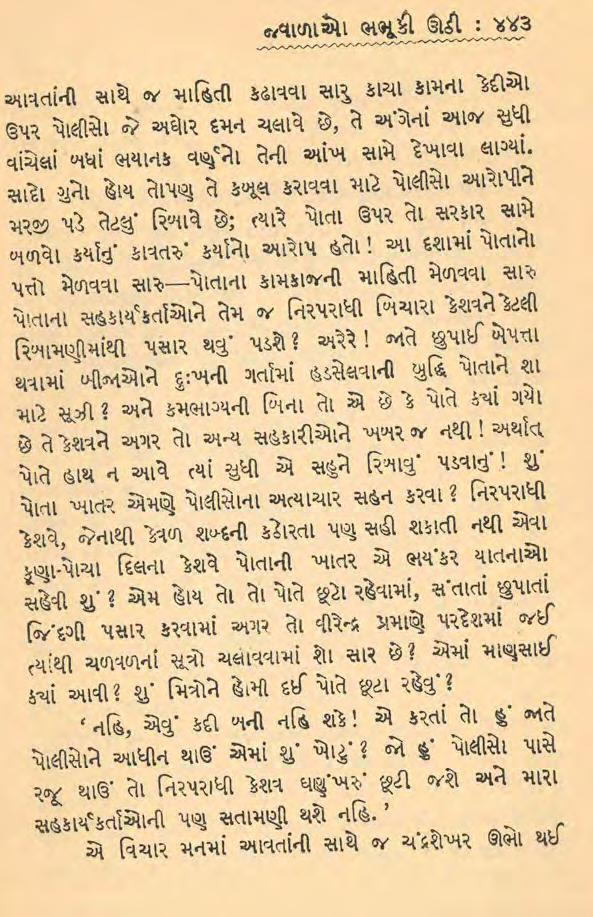 જ્વાળાઓ ભભૂકી ઊઠી : ૪૪૩
આવતાંની સાથે જ માહિતી કઢાવવા સારુ કાચા કામના કેદીઓ
ઉપર પોલીસો જે અઘોર દમન ચલાવે છે, તે અંગેનાં આજ સુધી
વાંચેલાં બધાં ભયાનક વર્ણનો તેની આંખ સામે દેખાવા લાગ્યાં.
સાદો ગુનો હોય તોપણ તે કબૂલ કરાવવા માટે પોલીસો આરોપીને
મરજી પડે તેટલું રિબાવે છે; ત્યારે પોતા ઉપર તો સરકાર સામે
બળવો કર્યાનું કાવતરું કર્યાનો આરોપ હતો! આ દશામાં પોતાનો
પત્તો મેળવવા સારુ—પોતાના કામકાજની માહિતી મેળવવા સારુ
પોતાના સહકાર્યકર્તાઓને તેમ જ નિરપરાધી બિચારા કેશવને કેટલી
રિબામણીમાંથી પસાર થવું પડશે? અરેરે! જાતે છુપાઈ બેપત્તા
થવામાં બીજાઓને દુઃખની ગર્તામાં હડસેલવાની બુદ્ધિ પોતાને શા
માટે સૂઝી? અને કમભાગ્યની બિના તો એ છે કે પોતે ક્યાં ગયો
છે તે કેશવને અગર તો અન્ય સહકારીઓને ખબર જ નથી! અર્થાત્
પોતે હાથ ન આવે ત્યાં સુધી એ સહુને રિબાવું પડવાનું! શું
પોતા ખાતર એમણે પોલીસોના અત્યાચાર સહન કરવા? નિરપરાધી
કેશવે, જેનાથી કેવળ શબ્દની કઠોરતા પણ સહી શકાતી નથી એવા
કૂણા-પોચા દિલના કેશવે પોતાની ખાતર એ ભયંકર યાતનાઓ
સહેવી શું? એમ હોય તો તો પોતે છૂટો રહેવામાં, સંતાતાં છુપાતાં
જિંદગી પસાર કરવામાં અગર તો વીરેન્દ્ર પ્રમાણે પરદેશમાં જઈ
ત્યાંથી ચળવળનાં સૂત્રો ચલાવવામાં શો સાર છે? એમાં માણસાઈ
ક્યાં આવી? શું મિત્રોને હોમી દઈ પોતે છૂટા રહેવું?
‘નહિ, એવું કદી બની નહિ શકે! એ કરતાં તો હું જાતે
પોલીસોને આધીન થાઉં એમાં શું ખોટું? જો હું પોલીસો પાસે
રજૂ થાઉં તો નિરપરાધી કેશવ ઘણુંખરું છૂટી જશે અને મારા
સહકાર્યકર્તાઓની પણ સતામણી થશે નહિ.’
એ વિચાર મનમાં આવતાંની સાથે જ ચંદ્રશેખર ઊભો થઈ